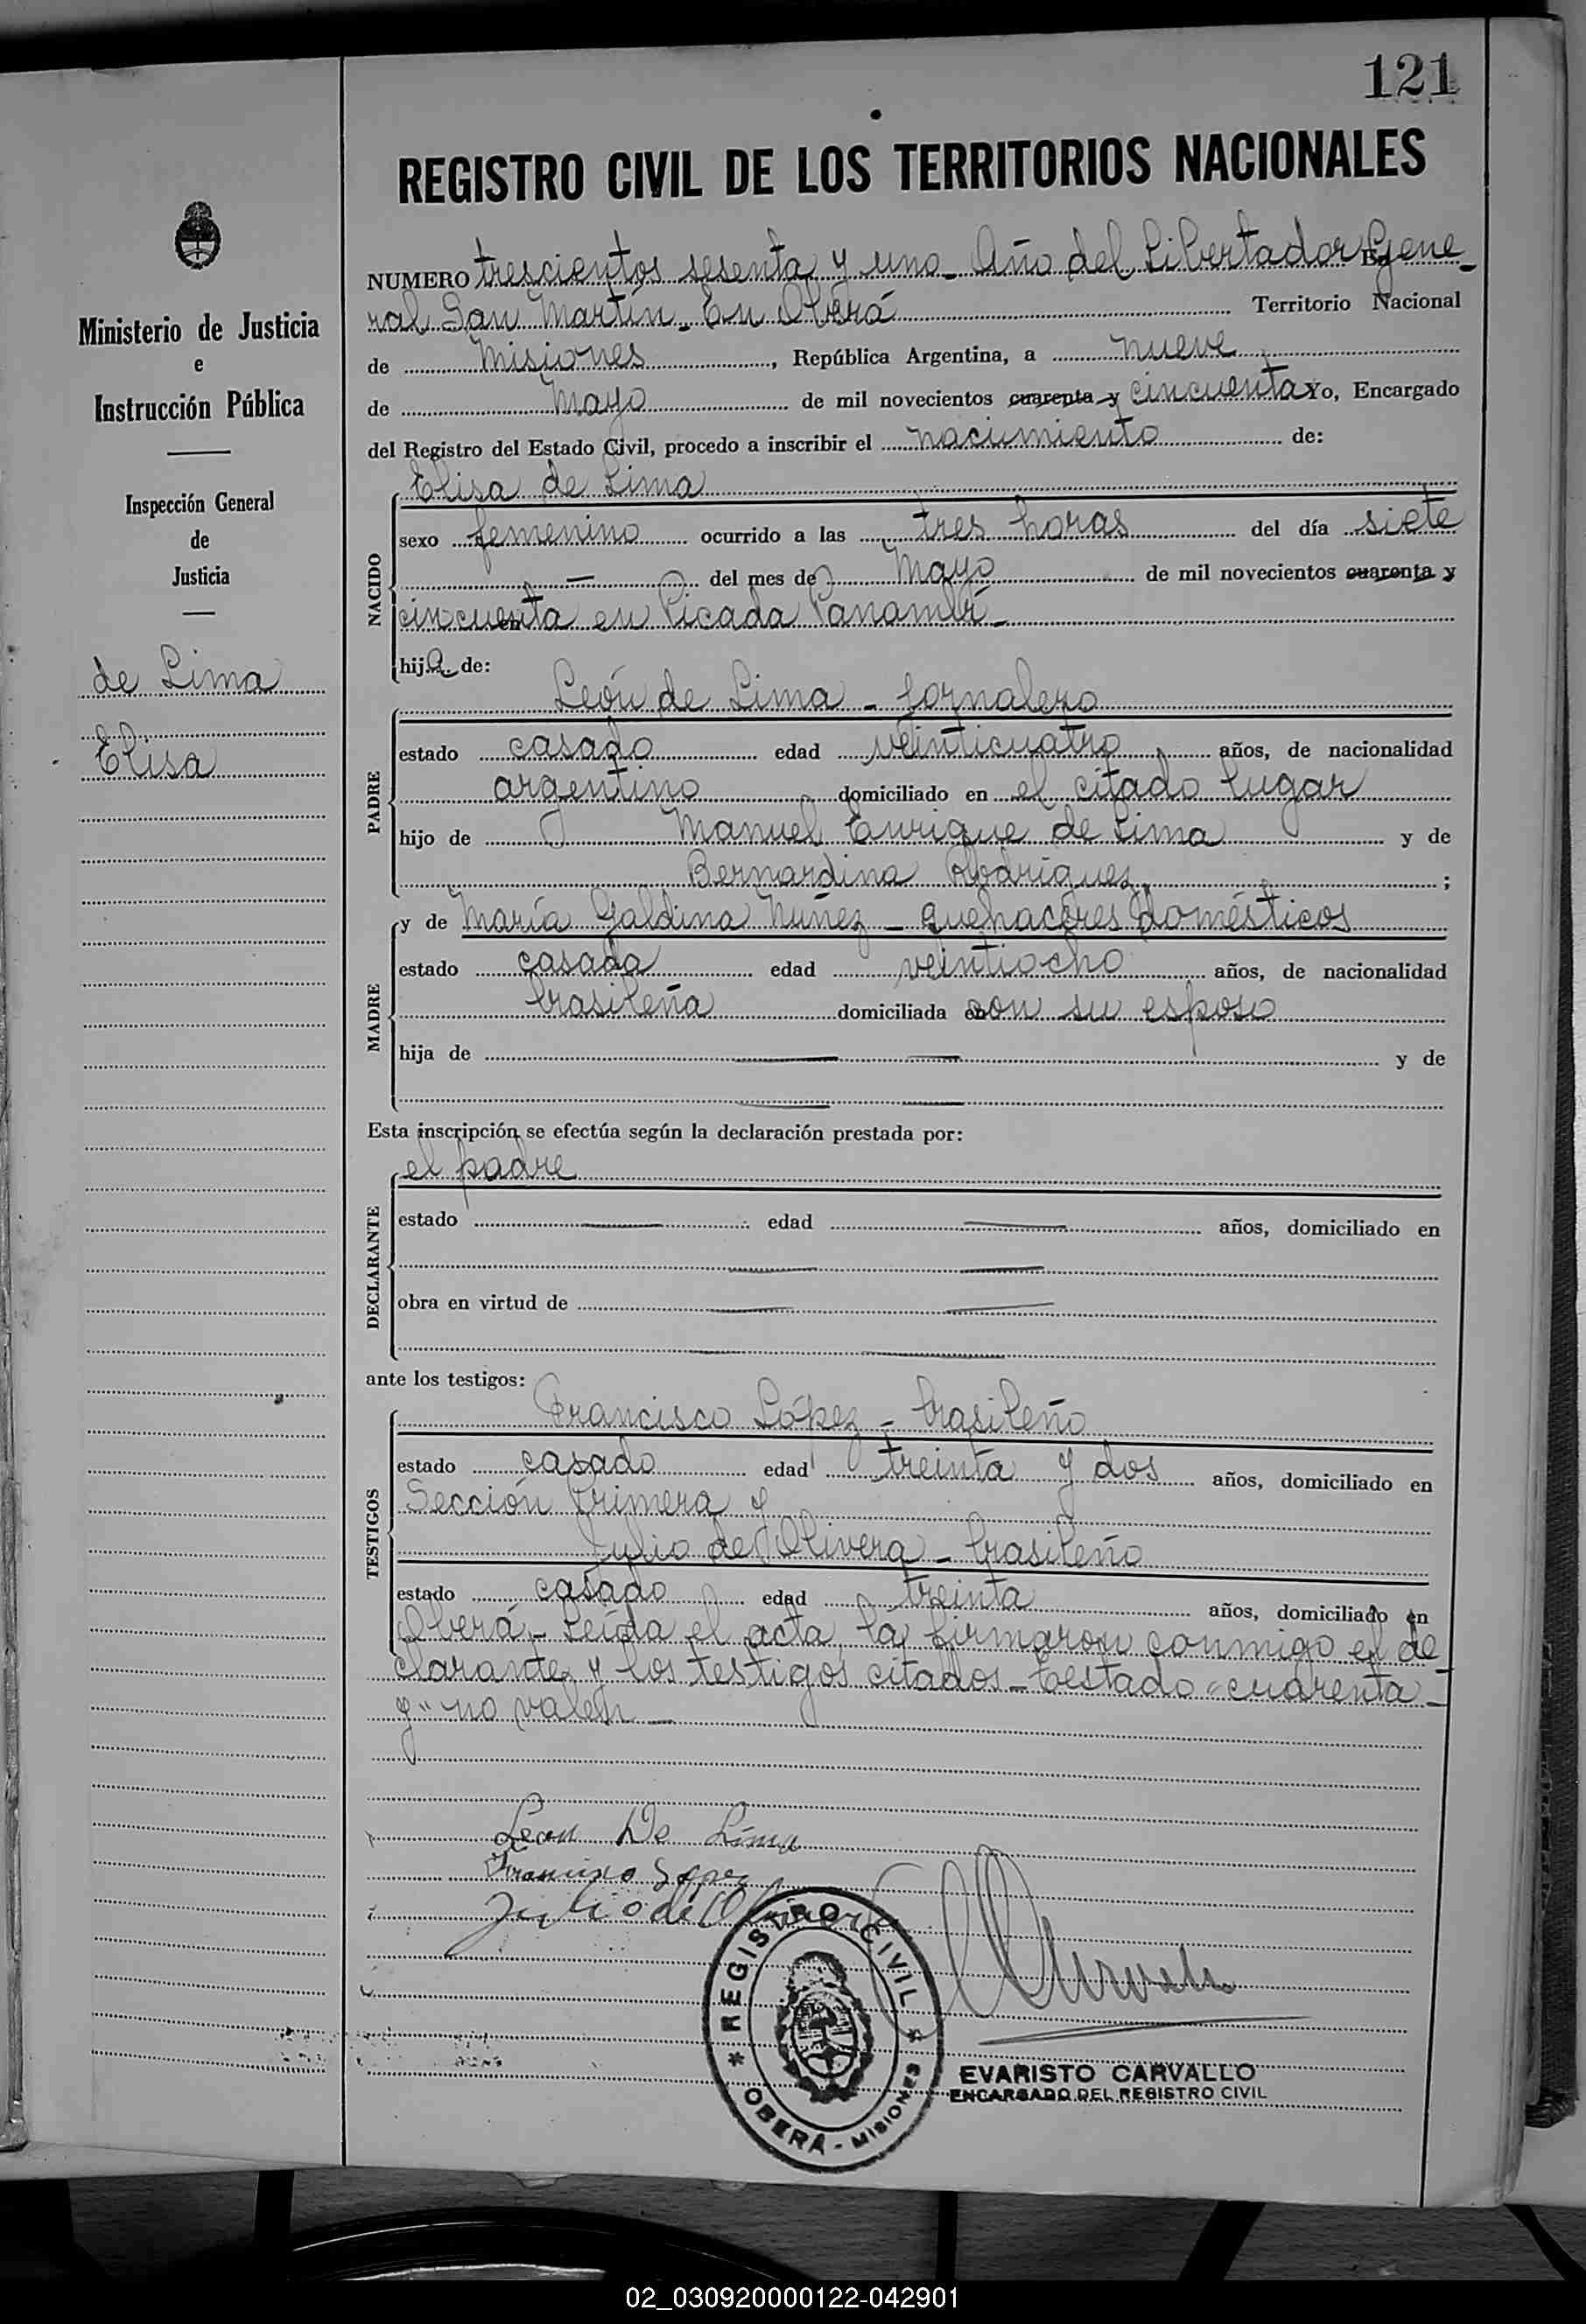 121
REGISTRO CIVIL DE LOS TERRITORIOS NACIONALES
NUMERO trescientos sesenta y uno - Año del Libertador Gene-
ral San Martín - En Oberá Territorio Nacional
de Misiones, República Argentina, a nueve
de Mayo de mil novecientos cuarenta y cincuenta Yo, Encargado
del Registro del Estado Civil, procedo a inscribir el nacimiento de:
Elisa de Lima
NACIDO
sexo femenino ocurrido a las tres horas del día siete
— del mes de Mayo de mil novecientos cuarenta y
cincuenta en Picada Panambí -
hija de:
León de Lima - Jornalero
PADRE
estado casado edad veinticuatro años, de nacionalidad
argentino domiciliado en el citado lugar
hijo de Manuel Enrique de Lima y de
Bernardina Rodrígues ;
y de María Galdina Núñez - quehaceres domésticos
MADRE
estado casada edad veintiocho años, de nacionalidad
brasileña domiciliada con su esposo
hija de — — y de
— —
Esta inscripción se efectúa según la declaración prestada por:
el padre
DECLARANTE
estado — edad — años, domiciliado en
— —
obra en virtud de — —
— —
ante los testigos:
Francisco López - brasileño
TESTIGOS
estado casado edad treinta y dos años, domiciliado en
Sección Primera y
Julio de Olivera - brasileño
estado casado edad treinta años, domiciliado en
Oberá - Leída el acta, la firmaron conmigo el de-
clarante y los testigos citados - Testado "cuarenta -
y" no valen -
Leon De Lima
Francisco Lopez
Julio de Olivera
REGISTRO CIVIL
* OBERÁ - MISIONES *
EVARISTO CARVALLO
ENCARGADO DEL REGISTRO CIVIL
Ministerio de Justicia
e
Instrucción Pública
Inspección General
de
Justicia
de Lima
Elisa
02_030920000122-042901